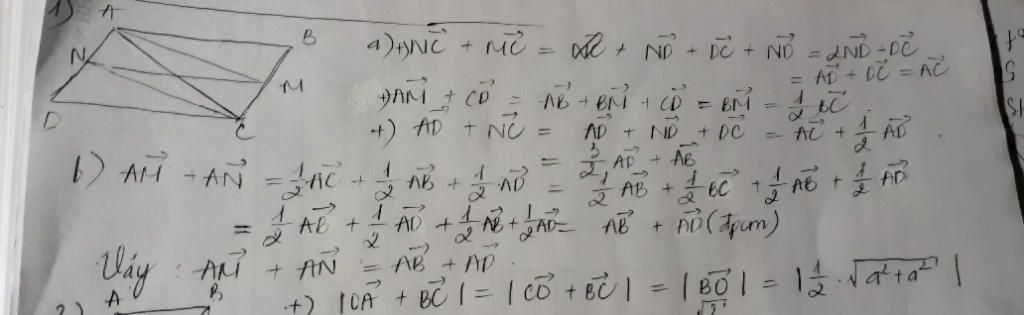 1)
A
B
N
M
D
C
a) +) NC→ + MC→ = ND→ + DC→ + ND→ = 2ND→ + DC→
= AD→ + DC→ = AC→
+) AM→ + CD→ = AB→ + BM→ + CD→ = BM→ = 1/2 BC→.
+) AD→ + NC→ = AD→ + ND→ + DC→ = AC→ + 1/2 AD→.
= 3/2 AD→ + AB→
b) AM→ + AN→ = 1/2 AC→ + 1/2 AB→ + 1/2 AD→ = 1/2 AB→ + 1/2 BC→ + 1/2 AB→ + 1/2 AD→
= 1/2 AB→ + 1/2 AD→ + 1/2 AB→ + 1/2 AD→ = AB→ + AD→ (đpcm)
Vậy : AM→ + AN→ = AB→ + AD→.
2)
A
B
+) |OA→ + BC→| = |CO→ + BC→| = |BO→| = |1/2 . √(a² + a²)|